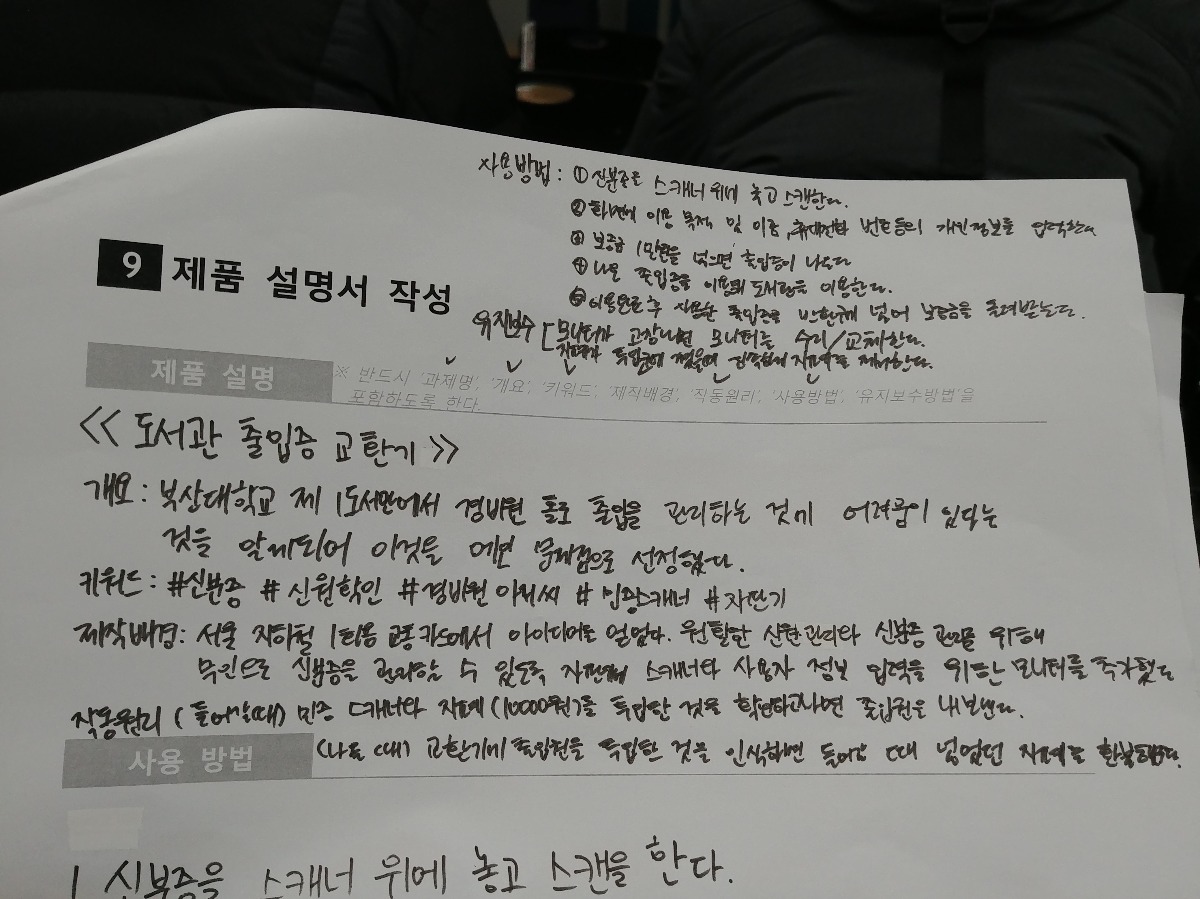 사용방법 : ① 신분증을 스캐너 위에 놓고 스캔한다.
② 화면에 이용 목적 및 이름, 휴대전화 번호등의 개인정보를 입력한다
③ 보증금 1만원을 넣으면 출입증이 나온다
④ 나온 출입증을 이용해 도서관을 이용한다.
⑤ 이용완료 후 사용한 출입증을 반환구에 넣어 보증금을 돌려받는다.
9 제품 설명서 작성
유지보수 [ 모니터가 고장나면 모니터를 수리/교체한다.
지폐가 투입구에 꼈을때 지폐를 제거한다.
제품 설명
※ 반드시 '과제명', '개요', '키워드', '제작배경', '작동원리', '사용방법', '유지보수방법'을
포함하도록 한다.
<< 도서관 출입증 교환기 >>
개요 : 부산대학교 제 1도서관에서 경비원 출입을 관리하는 것에 어려움이 있다는
것을 알게되어 이것을 문제점으로 선정했다.
키워드 : #신분증 # 신원확인 #경비원 아저씨 # 스캐너 #자판기
제작배경 : 서울 지하철 1회용 교통카드에서 아이디어를 얻었다. 원활한 신원관리와 신분증 관리를 위해
무인으로 신분증을 관리할 수 있도록 자판기에 스캐너와 사용자 정보 입력을 위한 모니터를 추가했다
작동원리 (들어갈때) 민증 스캐너와 지폐(10000원)를 투입한 것을 확인하고나면 출입권을 내보낸다.
사용 방법
(나올 때) 교환기에 출입권을 투입한 것을 인식하면 들어갈 때 넣었던 지폐로 환불해준다.
1 신분증을 스캐너 위에 놓고 스캔을 한다.